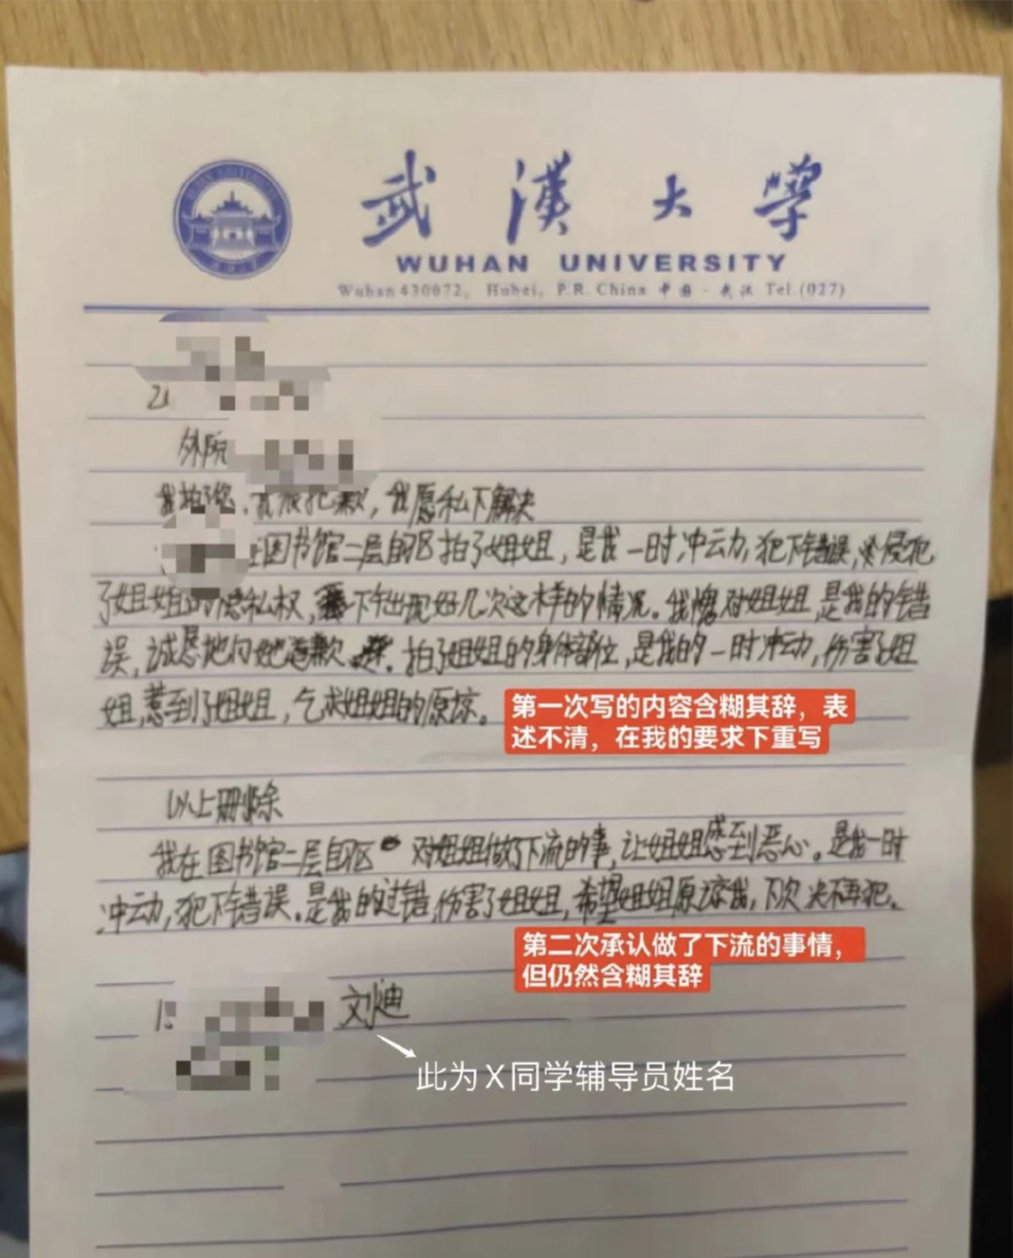 武漢大學
WUHAN UNIVERSITY
Wuhan 430072, Hubei, P.R. China 中国·武汉 Tel.(027)
外院
我拍了您,真很抱歉,我愿私下解决
在图书馆二层自习区拍了姐姐,是我一时冲动,犯下错误,侵犯
了姐姐的隐私权,下午出现好几次这样的情况。我愧对姐姐,是我的错
误,诚恳地向她道歉。拍了姐姐的身体部位,是我的一时冲动,伤害了姐
姐,惹到了姐姐,乞求姐姐的原谅。
第一次写的内容含糊其辞,表
述不清,在我的要求下重写
以上删除
我在图书馆二层自习区对姐姐做了下流的事,让姐姐感到恶心。是我一时
冲动,犯下错误。是我的过错,伤害了姐姐,希望姐姐原谅我,下次决不再犯。
第二次承认做了下流的事情,
但仍然含糊其辞
刘迪
此为X同学辅导员姓名